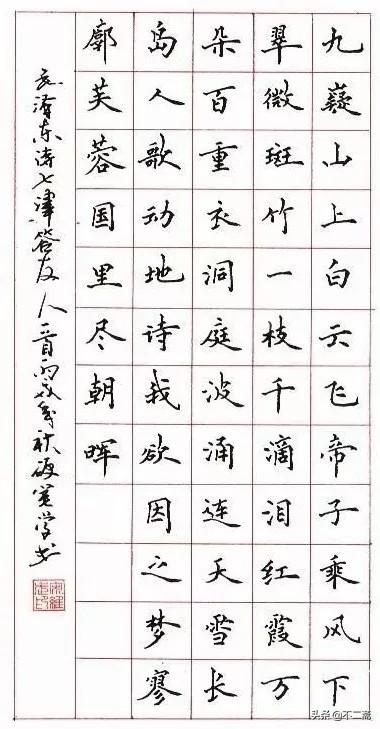 九嶷山上白云飞帝子乘风下
翠微斑竹一枝千滴泪红霞万
朵百重衣洞庭波涌连天雪长
岛人歌动地诗我欲因之梦寥
廓芙蓉国里尽朝晖
毛泽东诗七律答友人一首丙戌年秋学书
头条 @不二斋